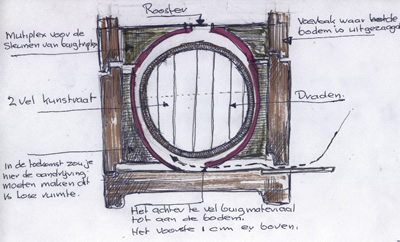 Rooster
Multiplex voor de
steunen van buigtriplex
Voorbak waar
bodem is uitgezaagd
2 vel kunstvat
Draden.
In de toekomst zou je
hier de aandrijving
moeten maken dit
is lose ruimte.
Het achter te vel buigmateriaal
tot aan de bodem.
Het voorste 1 cm er boven.